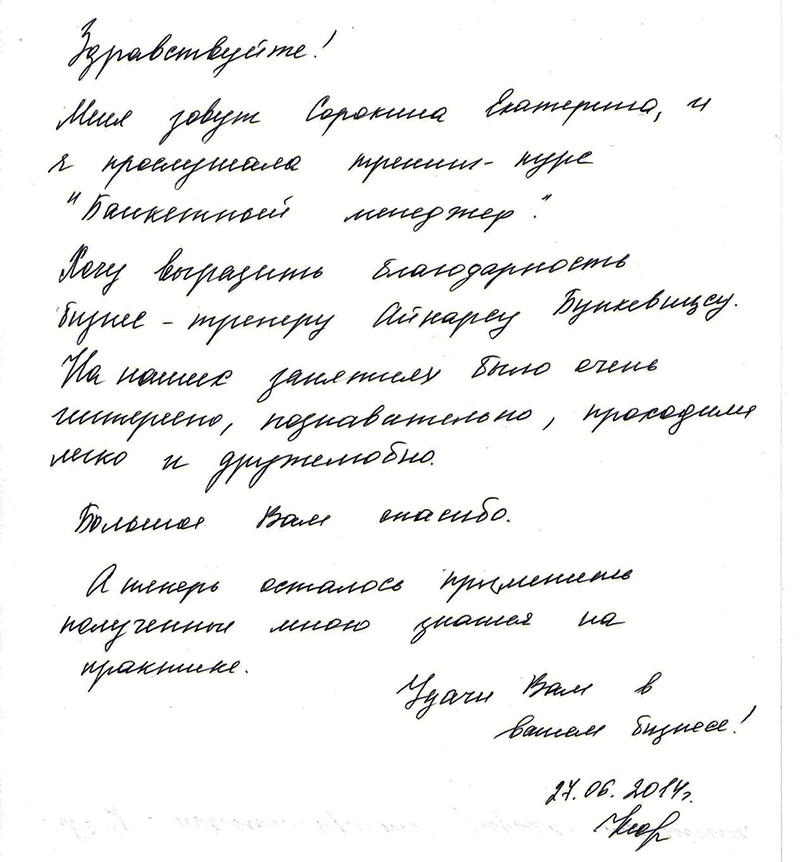 Здравствуйте!
Меня зовут Сорокина Екатерина, и
я прослушала тренинг-курс
"Банкетный менеджер".
Хочу выразить благодарность
бизнес-тренеру Айнарсу Бункевицсу.
На наших занятиях было очень
интересно, познавательно, проходили
легко и дружелюбно.
Большое Вам спасибо.
А теперь осталось применить
полученные мною знания на
практике.
Удачи Вам в
вашем бизнесе!
27.06.2014г.